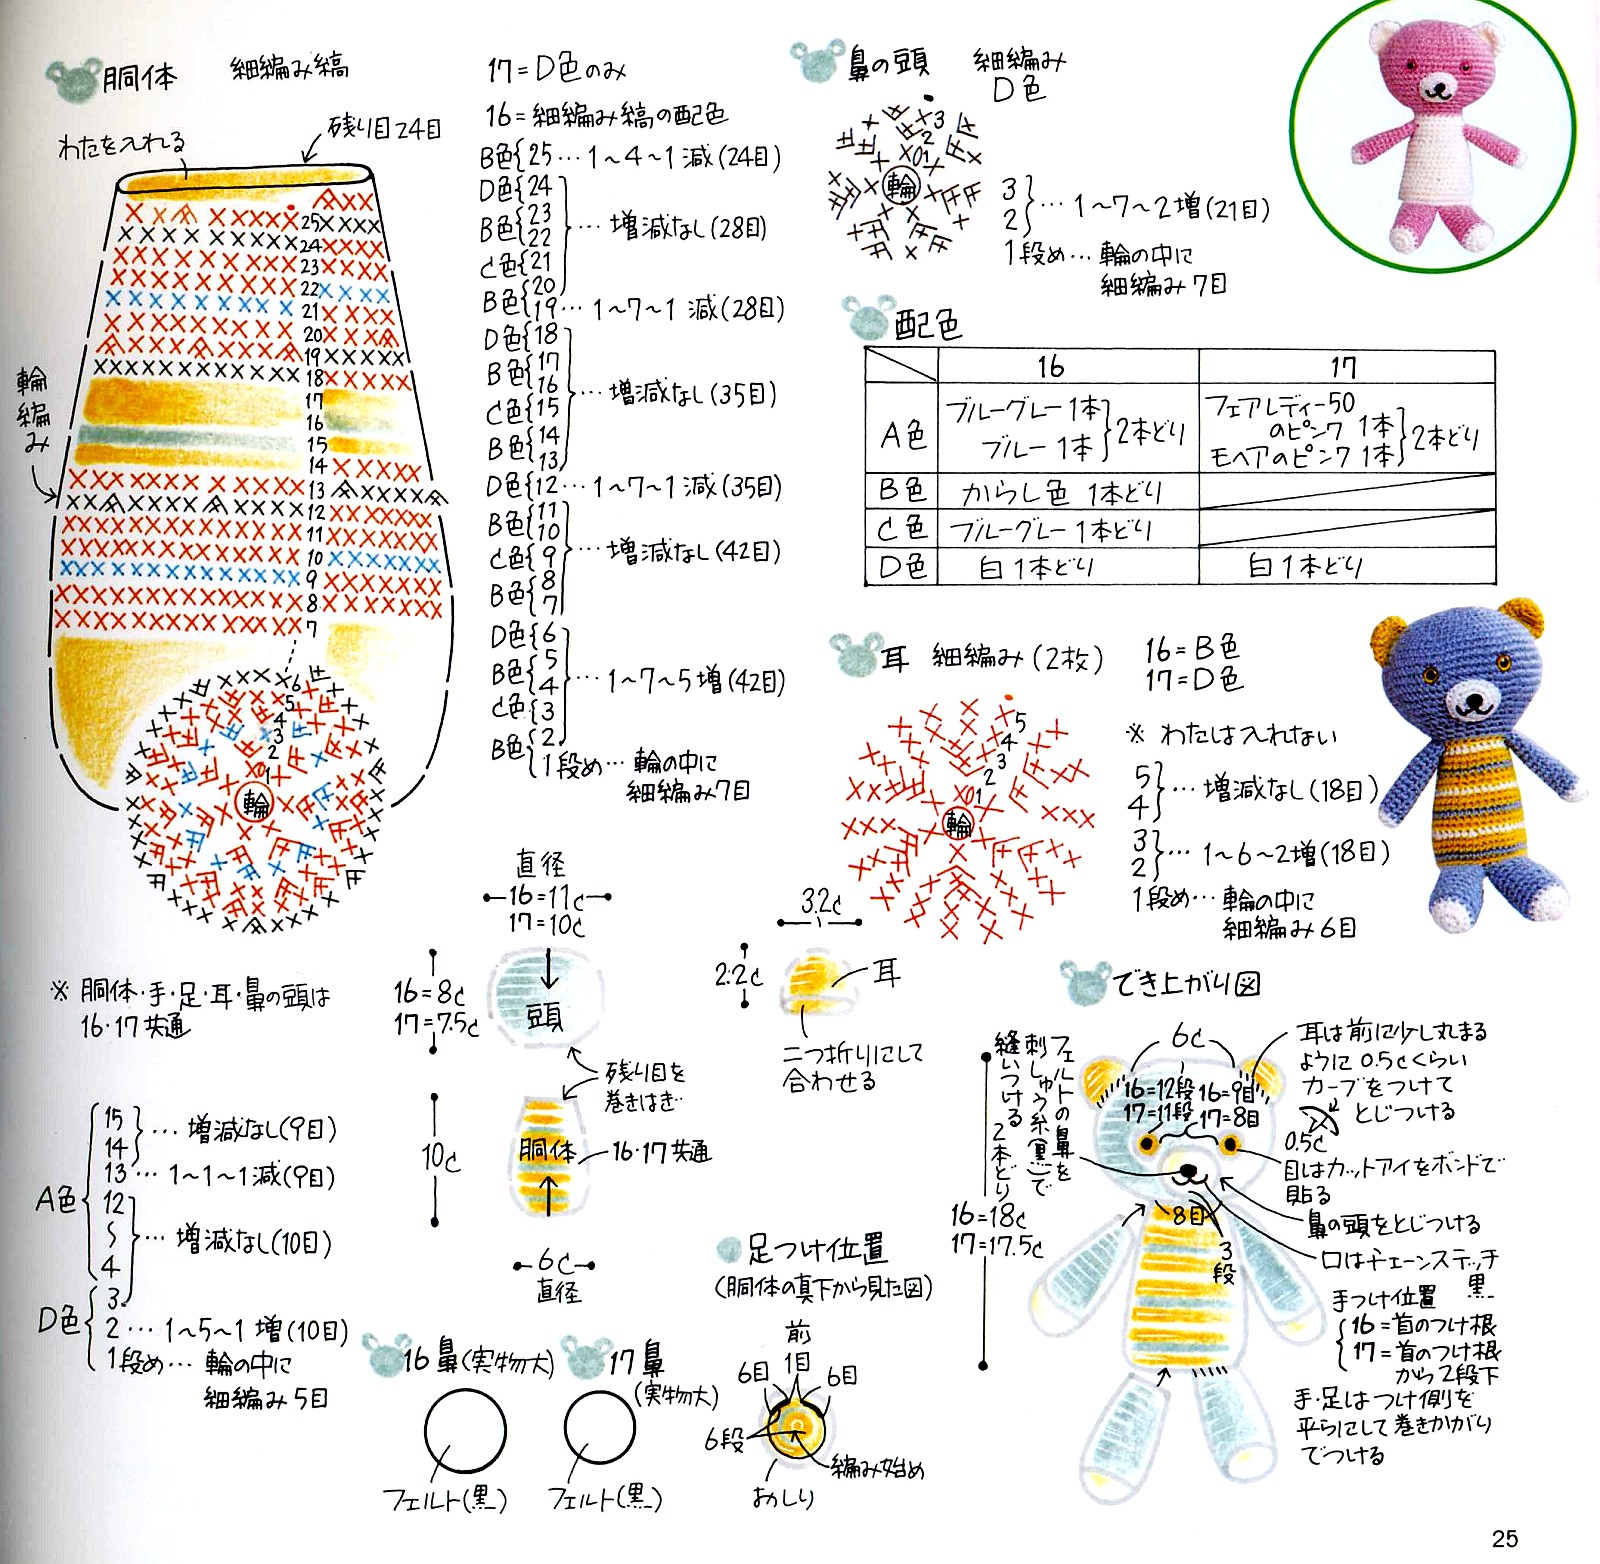 胴体 細編み縞
わたを入れる
残り目24目
輪編み
25
24
23
22
21
20
19
18
17
16
15
14
13
12
11
10
9
8
7
6
5
4
3
2
1
輪
17=D色のみ
16=細編み縞の配色
B色{25…1〜4〜1減(24目)
D色{24
B色{23
22
C色{21
20
…増減なし(28目)
B色{19…1〜7〜1減(28目)
D色{18
B色{17
16
C色{15
B色{14
13
…増減なし(35目)
D色{12…1〜7〜1減(35目)
B色{11
10
C色{9
B色{8
7
…増減なし(42目)
D色{6
B色{5
4
C色{3
B色{2
…1〜7〜5増(42目)
1段め…輪の中に
細編み7目
鼻の頭 細編み
D色
3
2
01
輪
3
2
…1〜7〜2増(21目)
1段め…輪の中に
細編み7目
配色
16 17
A色 ブルーグレー1本 ブルー1本}2本どり フェアレディー50のピンク1本 モヘアのピンク1本}2本どり
B色 からし色 1本どり
C色 ブルーグレー1本どり
D色 白1本どり 白1本どり
耳 細編み(2枚)
16=B色
17=D色
※わたは入れない
5
4
3
2
01
輪
5
4
…増減なし(18目)
3
2
…1〜6〜2増(18目)
1段め…輪の中に
細編み6目
※胴体・手・足・耳・鼻の頭は
16・17共通
直径
16=11c
17=10c
16=8c
17=7.5c
頭
残り目を
巻きはぎ
10c
胴体
16・17共通
6c
直径
3.2c
2.2c
耳
二つ折りにして
合わせる
A色
15
14
…増減なし(9目)
13…1〜1〜1減(9目)
12
〜
4
…増減なし(10目)
D色
3
2…1〜5〜1増(10目)
1段め…輪の中に
細編み5目
16鼻(実物大)
フェルト(黒)
17鼻
(実物大)
フェルト(黒)
足つけ位置
(胴体の真下から見た図)
前
1目
6目 6目
6段
編み始め
おしり
でき上がり図
6c
16=12段 16=9目
17=11段 17=8目
8目
3段
16=18c
17=17.5c
フェルトの鼻を
刺しゅう糸(黒)で
縫いつける 2本どり
耳は前に少し丸まる
ように0.5cくらい
カーブをつけて
とじつける
0.5c
目はカットアイをボンドで
貼る
鼻の頭をとじつける
口はチェーンステッチ
黒
手つけ位置
16=首のつけ根
17=首のつけ根
から2段下
手・足はつけ側を
平らにして巻きかがり
でつける
25